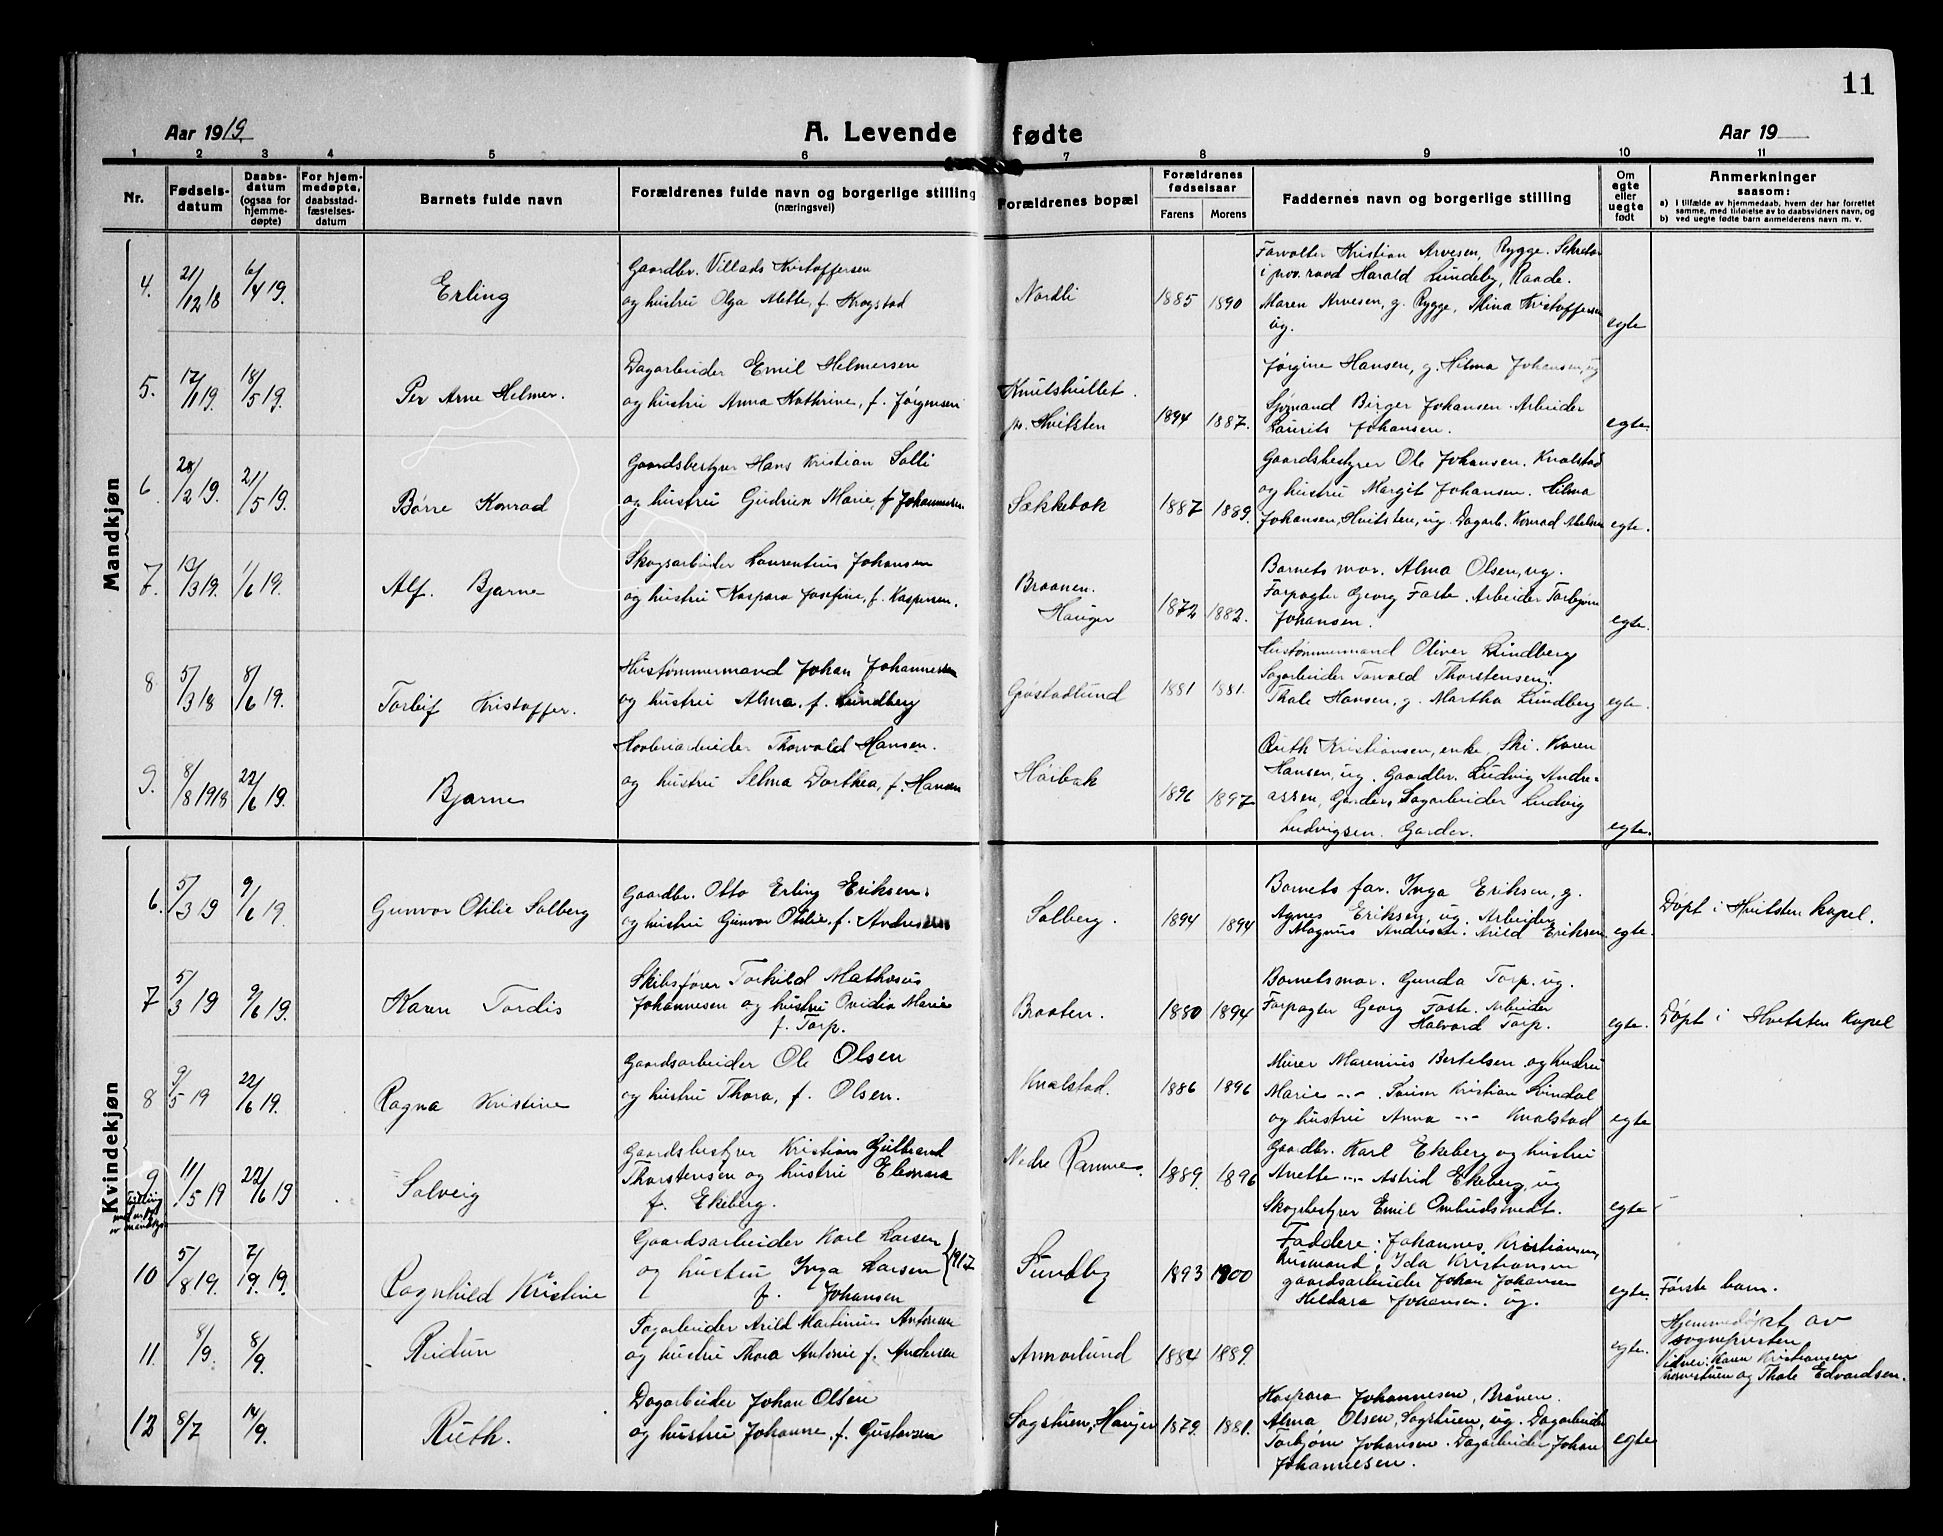 11
Aar 1919
A. Levende fødte
Aar 19
1 2 3 4 5 6 7 8 9 10 11
Nr.
Fødsels-datum
Daabs-datum (ogsaa for hjemme-døpte)
For hjem-medøpte, daabsstad-fæstelses-datum
Barnets fulde navn
Forældrenes fulde navn og borgerlige stilling (næringsvei)
Forældrenes bopæl
Forældrenes fødselsaar
Farens
Morens
Faddernes navn og borgerlige stilling
Om egte eller uegte født
Anmerkninger
saasom:
a) I tilfælde av hjemmedaab, hvem der har forrettet samme, med tilføielse av to daabsvidners navn, og
b) ved uegte fødte barn anmelderens navn m. v.
Mandkjøn
4. 21/12 18 6/4 19. Erling
Gaardbr. Villads Kristoffersen
og hustru Olga Alette, f. Krogstad
Nordli 1885 1890
Forvalter Kristian Arvesen, Rygge. Sekretær
i prov. raad Harald Lundeby, Raade.
Maren Arvesen, g. Rygge, Mina Kristoffersen
ug.
egte
5. 17/1 19. 18/5 19. Per Arne Helmer.
Dagarbeider Emil Helmersen
og hustru Anna Kathrine, f. Jørgensen
Knutshullet.
pr. Hvitsten 1894 1887.
Jørgine Hansen, g. Hilma Johansen, ug
Sjømand Birger Johansen. Arbeider
Laurits Johansen.
egte.
6. 28/2 19. 21/5 19. Børre Konrad
Gaardsbestyrer Hans Kristian Solli
og hustru Gudrun Marie, f. Johannesen
Sækkebæk 1887 1889.
Gaardsbestyrer Ole Johansen. Knalstad
og hustru Margit Johansen. Hilma
Johansen, Hvitsten, ug. Dagarb. Konrad
egte.
7. 13/3 19. 1/6 19. Alf. Bjarne
Skogsarbeider Laurentius Johansen
og hustru Kaspara Josefine, f. Kaspersen.
Braanen.
Hauger 1872 1882.
Barnets mor. Alma Olsen, ug.
Forpagter Georg Faste. Arbeider Torbjørn
Johansen.
egte.
8 5/3 18 8/6 19. Torleif Kristoffer.
Hustømmermand Johan Johannesen
og hustru Alma, f. Lundberg
Grøstadlund 1881 1881.
Hustømmermand Oliver Lundberg
Sagarbeider Torvald Thorstensen,
Thale Hansen, g. Martha Lundberg
egte.
9. 8/8 1918 22/6 19. Bjarne
Høvleriarbeider Thorvald Hansen.
og hustru Selma Dorthea, f. Hansen
Høibæk 1896 1897
Ruth Kristiansen, enke, Ski. Karen
Hansen, ug. Gaardbr. Ludvig Andre-
assen, Garder, Sagarbeider Ludvig
Ludvigsen. Garder.
egte.
Kvindekjøn
6. 5/3 19 9/6 19. Gunvor Otilie Solberg
Gaardbr. Otto Erling Eriksen.
og hustru Gunvor Otilie, f. Andresen
Solberg. 1894 1894
Barnets far. Inga Eriksen, g.
Agnes Eriksen, ug. Arbeider
Magnus Andresen. Arild Eriksen
egte.
Døpt i Hvitsten kapel.
7 5/3 19 9/6 19. Karen Tordis
Skibsfører Torkild Mathæus
Johannesen og hustru Ovidia Marie
f. Torp.
Braaten. 1880 1894
Barnets mor. Gunda Torp. ug.
Forpagter Georg Faste. Arbeider
Halvard Torp.
egte.
Døpt i Hvitsten kapel
8 9/5 19 22/6 19. Ragna Kristine
Gaardsarbeider Ole Olsen
og hustru Thora, f. Olsen.
Knalstad. 1886 1896
Murer Marenius Bertelsen og hustru
Marie -"-. Kristian Svindal
og hustru Anna -"- Knalstad
egte
9 11/5 19 22/6 19 Solveig
Tvilling
Gaardsbestyrer Kristian Gulbrand
Thorstensen og hustru Eleonora
f. Ekeberg.
Nedre Ramme. 1889. 1896
Gaardbr. Karl Ekeberg og hustru
Anette -"- Astrid Ekeberg, ug
Skogbestyrer Emil Ombudstvedt.
egte
10 5/8 19. 7/9. 19. Ragnhild Kristine
Gaardsarbeider Karl Larsen
og hustru Inga Larsen } 1917
f. Johansen
Sundby 1893 1900
Faddere: Johannes Kristiansen,
Husmand, Ida Kristiansen
gaardsarbeider Johan Johansen
Heldara Johansen. ug.
egte.
Første barn.
11. 8/9. 8/9. Reidun
Sagarbeider Arild Martinius Antonsen
og hustru Thora Antonie f. Andersen
Annaslund 1884 1889.
egte.
Hjemmedøpt av
sognepresten
Vidner: Karen Kristiansen
og Thale Edvardsen.
12 8/7 14/9. Ruth.
Dagarbeider Johan Olsen
og hustru Johanne, f. Gustavsen
Sagstuen, Hauger 1879. 1881.
Kaspara Johannesen, Brånen.
Alma Olsen, Sagstuen, ug. Dagarbeider
Torbjørn Johansen. Dagarbeider Johan
Johannesen.
egte